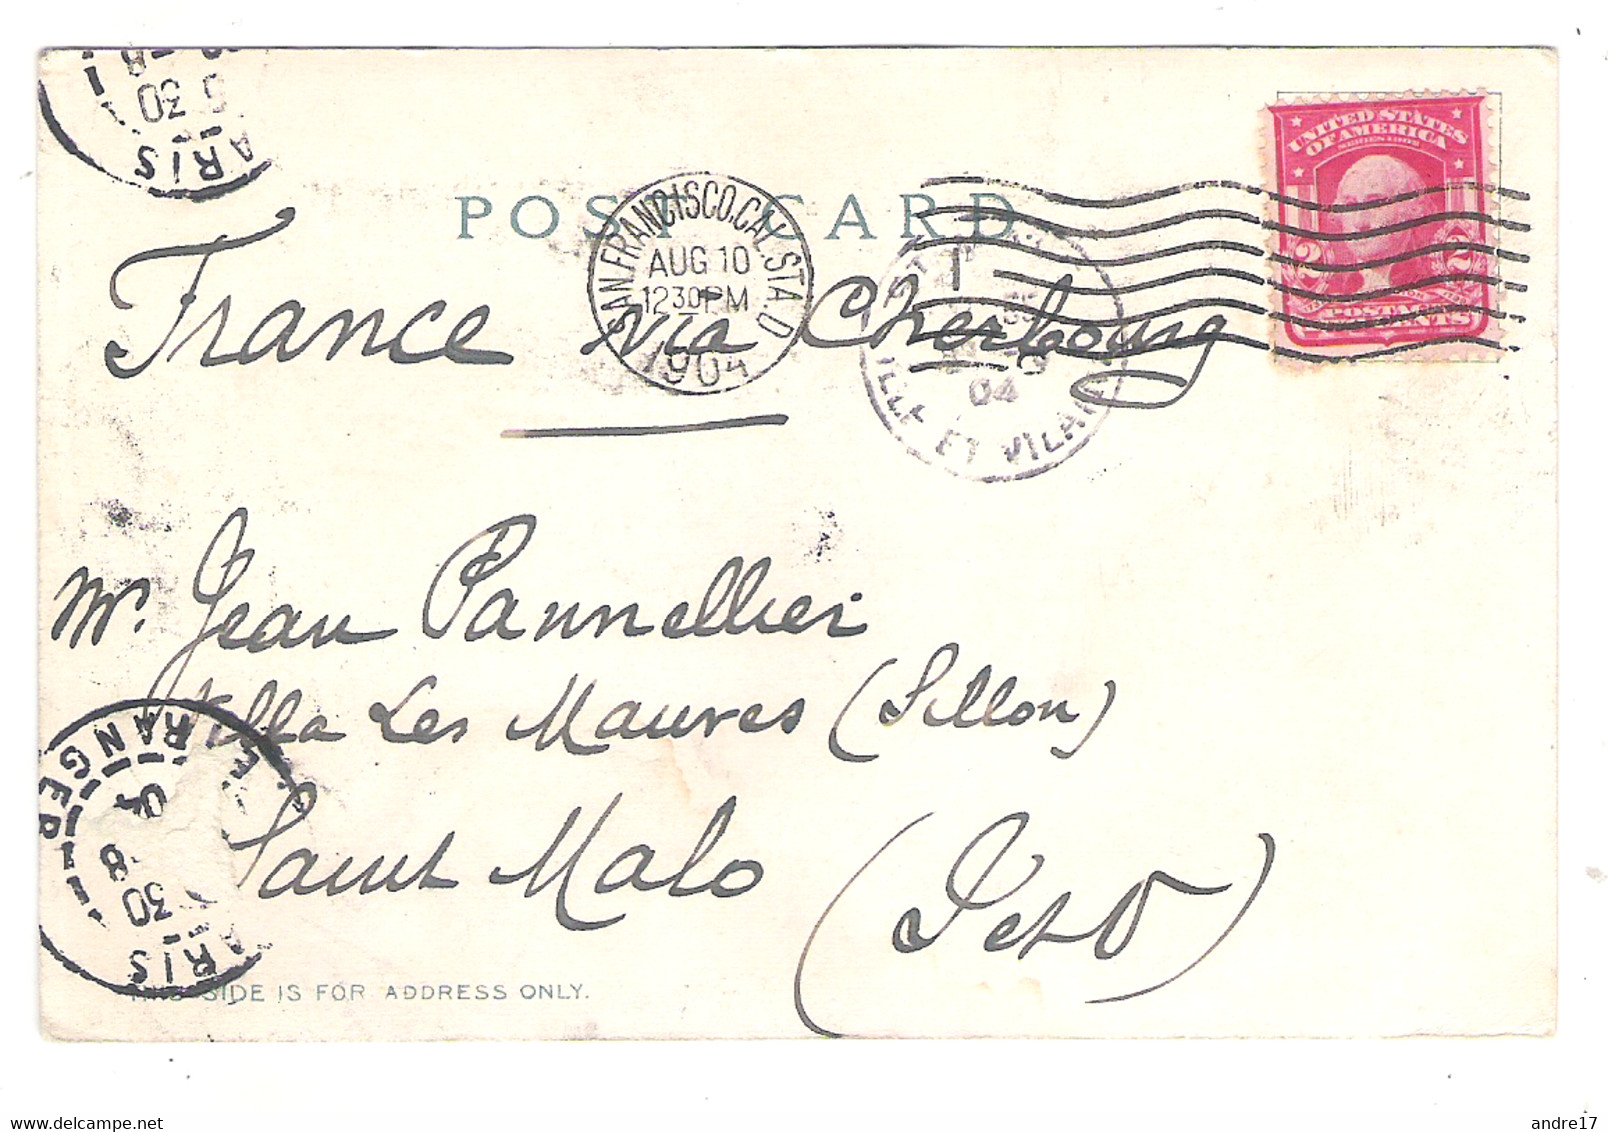 POST CARD
UNITED STATES
OF AMERICA
SERIES 1902
2 2
POSTAGE
CENTS
SAN FRANCISCO, CAL. STA. D
AUG 10
12 30 PM
1904
France via Cherbourg
04
ILLE ET VILAINE
Mr. Jean Pannellier
Villa Les Maures (Sillon)
Saint Malo (I et V)
ARIS
30
8
RANGER
04
8
30
ARIS
THIS SIDE IS FOR ADDRESS ONLY.
andre17